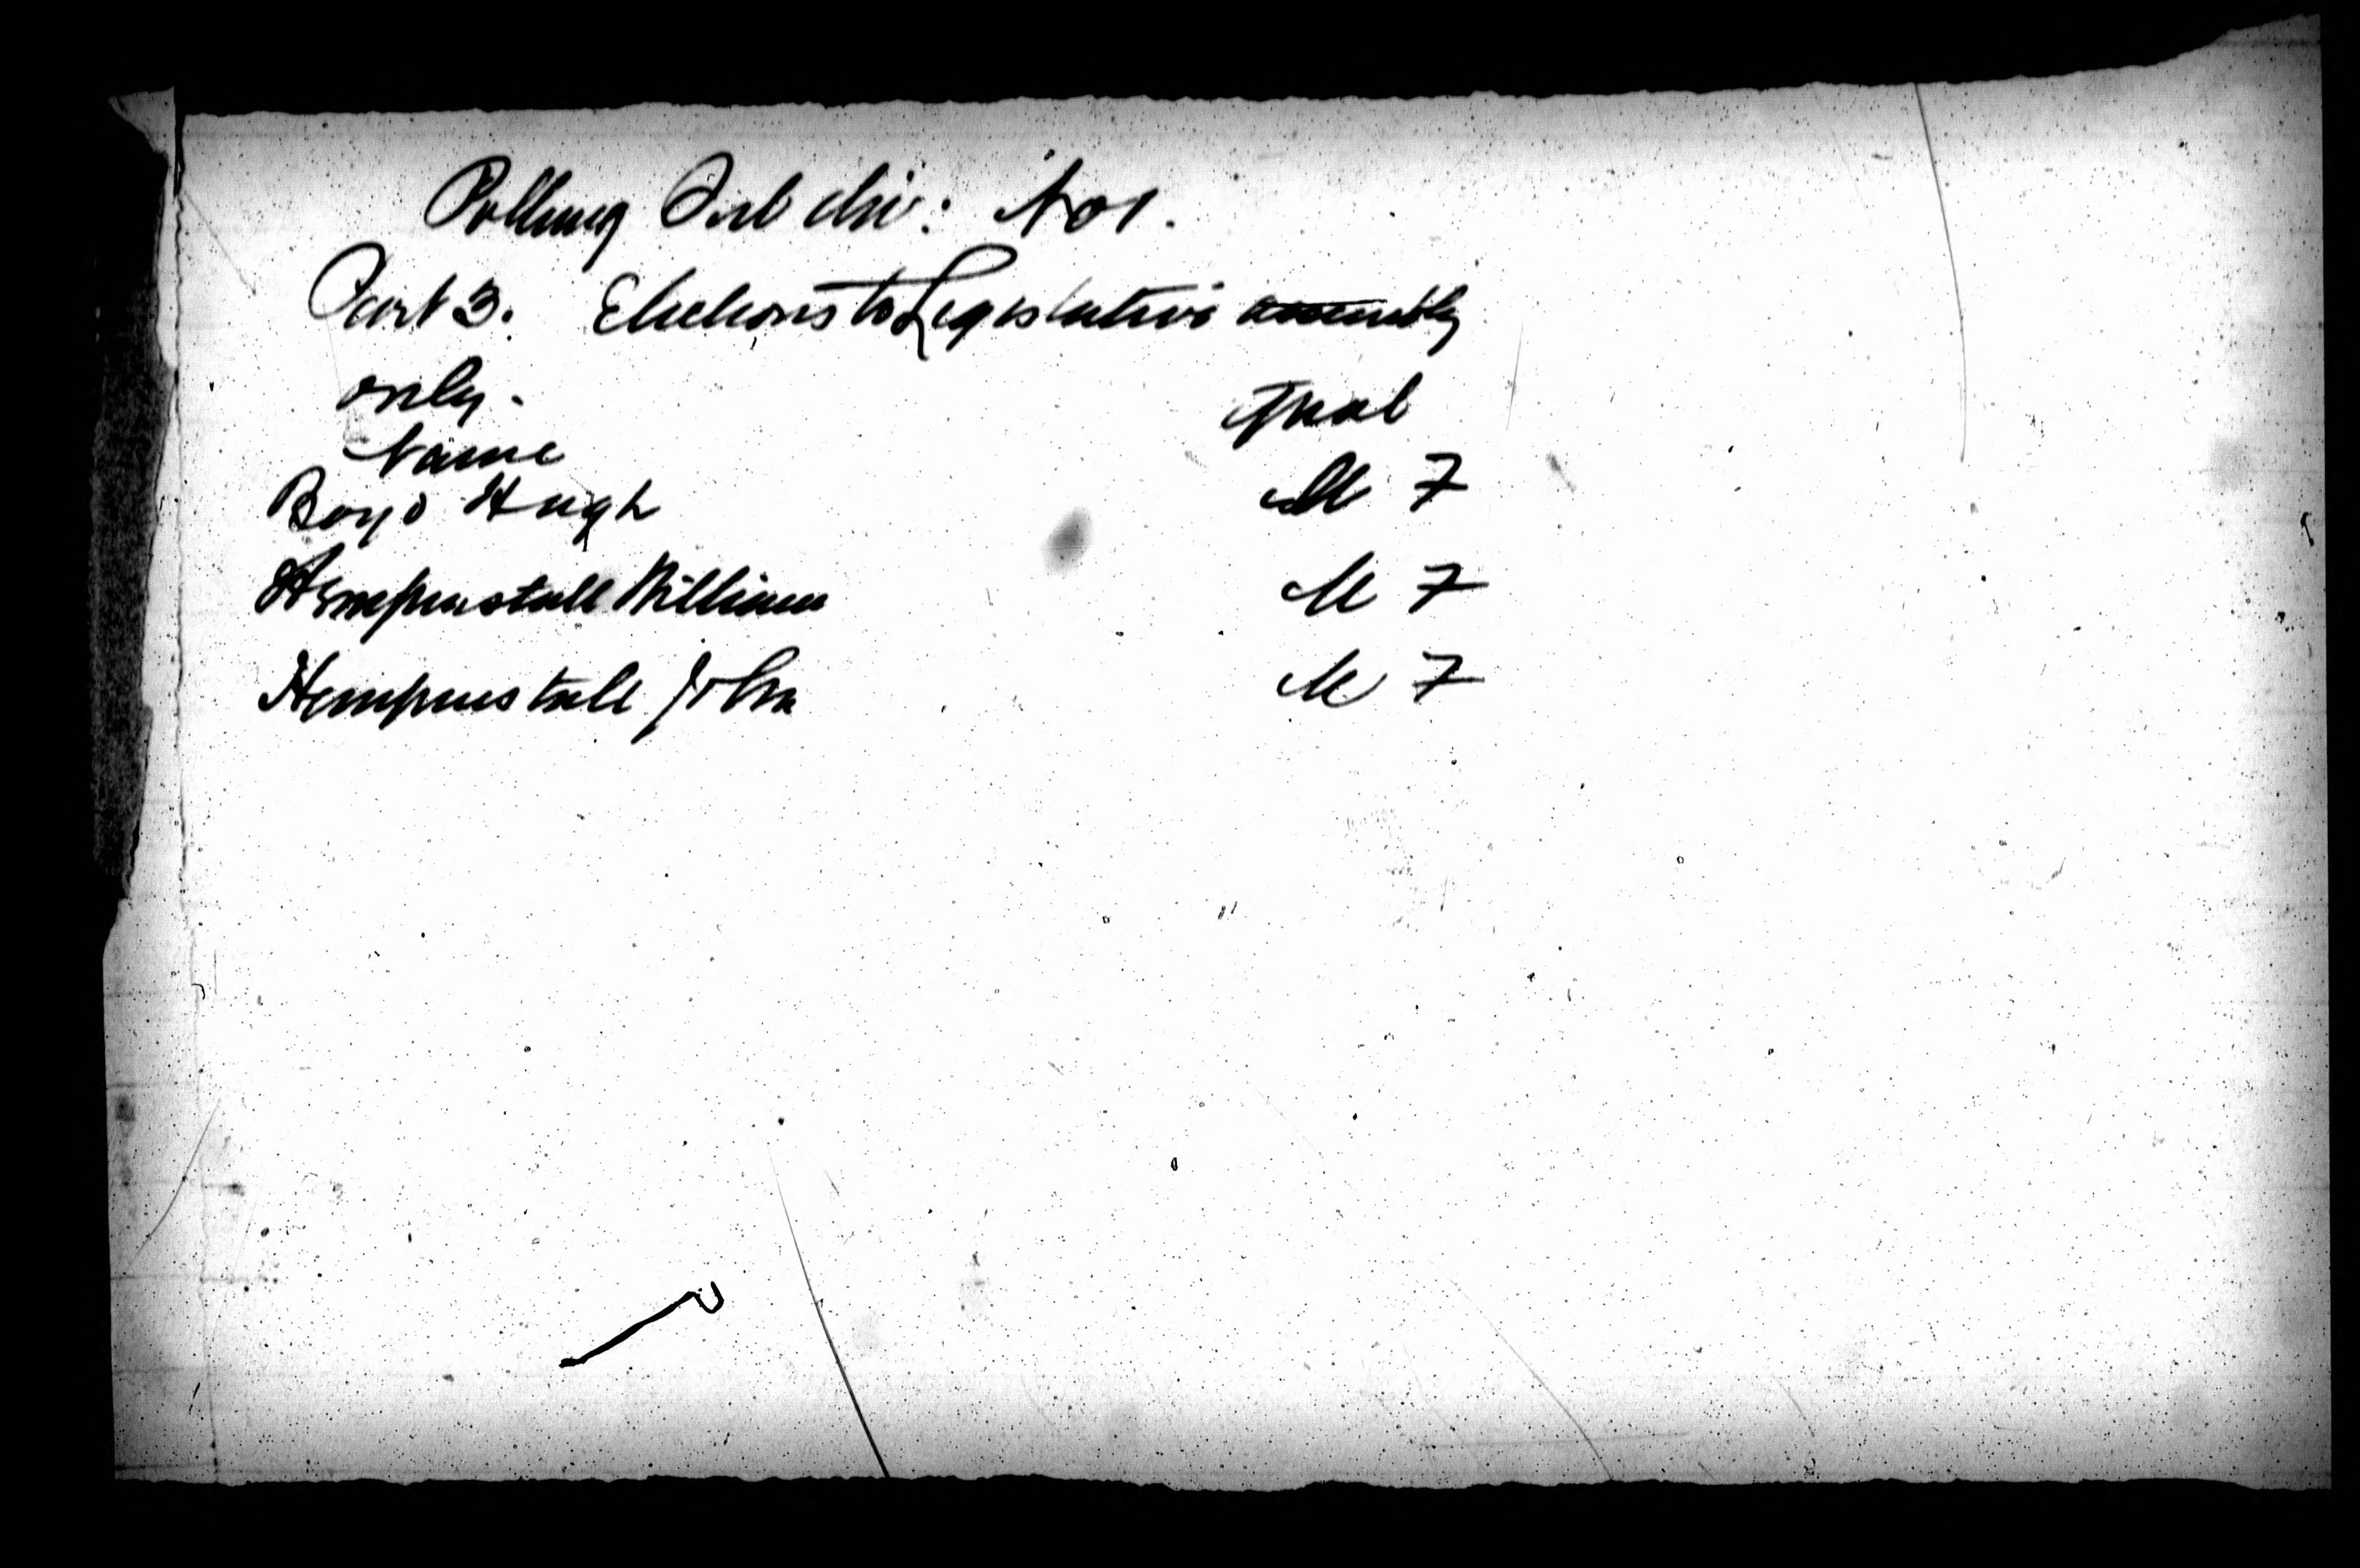 Polling Sub div: No 1.
Part 3. Elections to Legislative assembly
only.
Name Qual
Boyd Hugh M 7
Hempenstall William M 7
Hempenstall John M 7